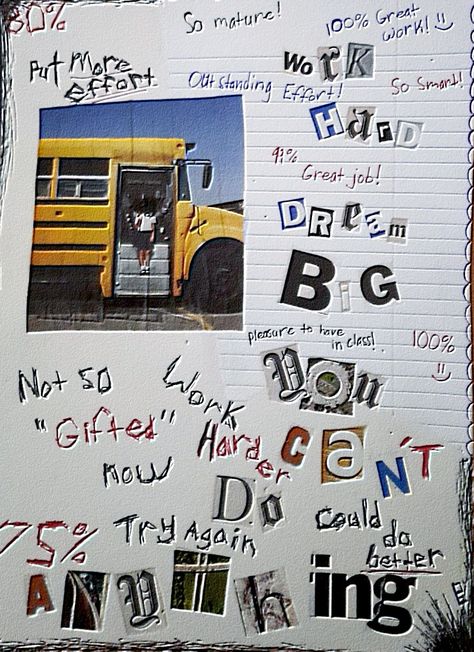 80%
So mature!
100% Great
work! :)
Put More
effort
WoRK
Outstanding Effort!
So Smart!
HaRD
Great job!
DReam
BiG
pleasure to have
in class!
100%
:)
You
Not so
"Gifted"
now
Work
Harder
CaN'T
Do
75%
Try Again
Could
do
better
ANYthing